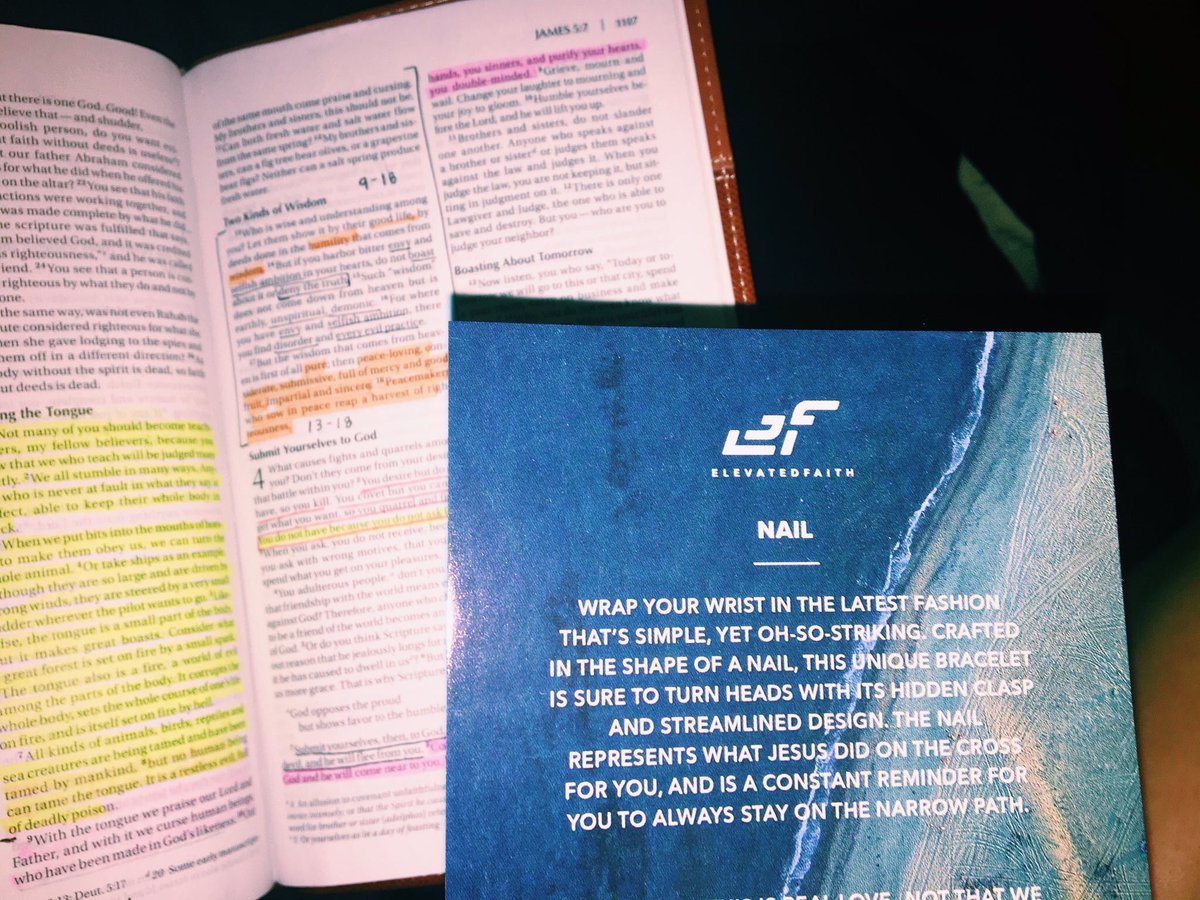 at there is one God. Good! Even the
believe that — and shudder.
foolish person, do you want
at faith without deeds is useless
our father Abraham considered
for what he did when he offered his
on the altar? 22You see that his faith
actions were working together, and
was made complete by what he did.
the scripture was fulfilled that says,
believed God, and it was credited
as righteousness," and he was called
friend. 24You see that a person is
righteous by what they do and not by
one.
the same way, was not even Rahab the
considered righteous for what she
when she gave lodging to the spies and
them off in a different direction?
body without the spirit is dead, so faith
out deeds is dead.
ng the Tongue
Not many of you should become
my fellow believers, because you
that we who teach will be judged more
tly. 2We all stumble in many ways.
who is never at fault in what they say is
able to keep their whole body in
ck.
When we put bits into the mouths of
to make them obey us, we can turn the
ole animal. 4Or take ships as an example.
though they are so large and are driven by
ong winds, they are steered by a very small
wherever the pilot wants to go.
the tongue is a small part of the body,
it makes great boasts. Consider what
great forest is set on fire by a small spark.
The tongue also is a fire, a world of evil
among the parts of the body. It corrupts the
whole body, sets the whole course of one's life
on fire, and is itself set on fire by hell.
7All kinds of animals, birds, reptiles and
sea creatures are being tamed and have been
tamed by mankind, 8but no human being
can tame the tongue. It is a restless evil, full
of deadly poison.
9With the tongue we praise our Lord and
Father, and with it we curse human beings,
who have been made in God's likeness.
Deut. 5:17 20 Some early manuscripts
JAMES 5:7 | 1107
of the same mouth come praise and cursing.
My brothers and sisters, this should not be.
Can both fresh water and salt water flow
from the same spring? My brothers and sis-
ters, can a fig tree bear olives, or a grapevine
bear figs? Neither can a salt spring produce
fresh water.
9-18
Two Kinds of Wisdom
Who is wise and understanding among
you? Let them show it by their good life, by
deeds done in the humility that comes from
wisdom. 14But if you harbor bitter envy and
selfish ambition in your hearts, do not boast
about it or deny the truth. 15Such "wisdom"
does not come down from heaven but is
earthly, unspiritual, demonic. 16For where
you have envy and selfish ambition, there
you find disorder and every evil practice.
17But the wisdom that comes from heav-
en is first of all pure; then peace-loving, con-
siderate, submissive, full of mercy and good
fruit, impartial and sincere. 18Peacemakers
who sow in peace reap a harvest of righ-
teousness.
13-18
Submit Yourselves to God
4 What causes fights and quarrels among
you? Don't they come from your desires
that battle within you? 2You desire but do
have, so you kill. You covet but you can
get what you want, so you quarrel and
You do not have because you do not ask
When you ask, you do not receive,
you ask with wrong motives, that you
spend what you get on your pleasures.
4You adulterous people, don't you
that friendship with the world means
against God? Therefore, anyone who
to be a friend of the world becomes an
of God. 5Or do you think Scripture
out reason that he jealously longs for
he has caused to dwell in us? But
us more grace. That is why Scripture
"God opposes the proud
but shows favor to the humble
Submit yourselves, then, to God.
devil, and he will flee from you.
God and he will come near to you.
4 An allusion to covenant unfaithfulness
hands, you sinners, and purify your hearts,
you double-minded. 9Grieve, mourn and
wail. Change your laughter to mourning and
your joy to gloom. 10Humble yourselves be-
fore the Lord, and he will lift you up.
11Brothers and sisters, do not slander
one another. Anyone who speaks against
a brother or sister or judges them speaks
against the law and judges it. When you
judge the law, you are not keeping it, but sit-
ting in judgment on it. 12There is only one
Lawgiver and Judge, the one who is able to
save and destroy. But you — who are you to
judge your neighbor?
Boasting About Tomorrow
13Now listen, you who say, "Today or to-
we will go to this or that city, spend
on business and make
ELEVATEDFAITH
NAIL
WRAP YOUR WRIST IN THE LATEST FASHION
THAT'S SIMPLE, YET OH-SO-STRIKING. CRAFTED
IN THE SHAPE OF A NAIL, THIS UNIQUE BRACELET
IS SURE TO TURN HEADS WITH ITS HIDDEN CLASP
AND STREAMLINED DESIGN. THE NAIL
REPRESENTS WHAT JESUS DID ON THE CROSS
FOR YOU, AND IS A CONSTANT REMINDER FOR
YOU TO ALWAYS STAY ON THE NARROW PATH.
IS REAL LOVE NOT THAT WE